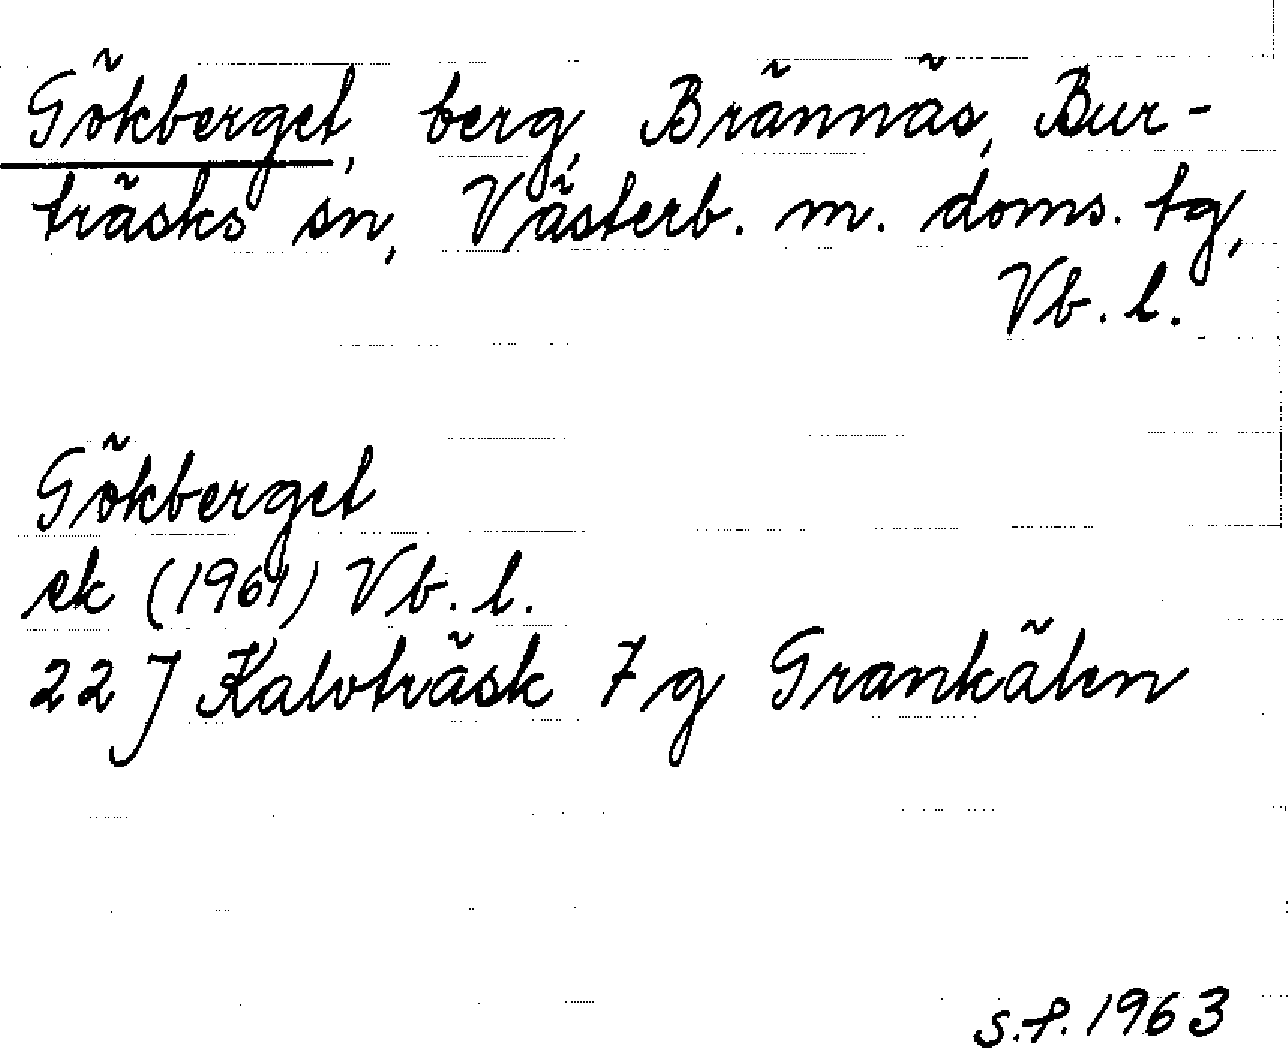 Gökberget, berg, Brännäs, Bur-
träsks sn, Västerb. m. doms. tg,
Vb. l.
Gökberget
ek (1961) Vb. l.
22 J Kalvträsk 7 g Grankälen
S.F. 1963